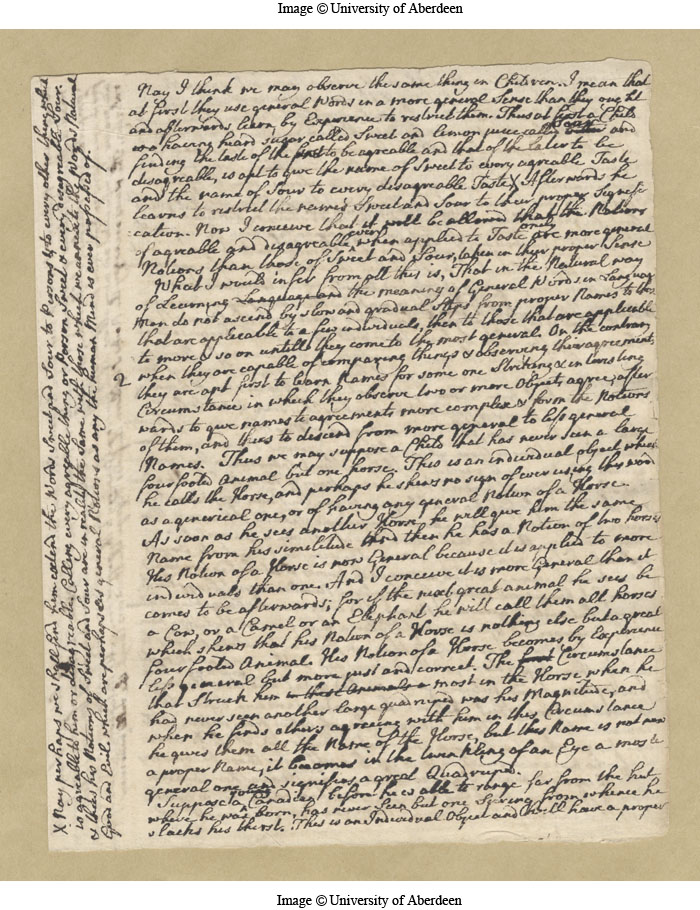 Image © University of Aberdeen
Nay I think we may observe the same thing in Children. I mean that
at first they use general Words in a more general Sense than they ought
and afterwards learn by Experience to restrict them. Thus a Child
having heard sugar called Sweet and lemon juice called Sour and
finding the taste of the first to be agreable and that of the later to be
disagreable, is apt to give the name of Sweet to every agreable Taste
and the name of Sour to every disagreable Taste X Afterwards he
learns to restrict the names Sweet and Sour to their proper Signifi
cation. Now I conceive that it will be allowed that the Notions
of agreable and disagreable, even when applied to Taste only are more general
Notions than those of Sweet and Sour, taken in their proper Sense
What I would infer from all this is, That in the Natural way
of Learning Language and the meaning of General Words in Language
Men do not ascend by slow and gradual steps from proper Names to those
that are applicable to a few individuals, then to those that are applicable
to more & so on untill they come to the most general. On the contrary
when they are capable of comparing things & observing their agreement,
2 they are apt first to learn Names for some one Striking & interesting
Circumstance in which they observe two or more Objects agree; after
wards to give names to agreements more complex & form the Notions
of them, and thus to descend from more general to less general
Names. Thus we may suppose a Child that has never seen a large
four footed Animal but one horse. This is an individual object which
he calls the Horse, and perhaps he shews no sign of ever using this word
as a generical one, or of having any general Notion of a Horse.
As soon as he sees another Horse, he will give him the same
Name from his similitude and then he has a Notion of two horses
His Notion of a Horse is now General because it is applied to more
individuals than one. And I conceive it is more General than it
comes to be afterwards; for if the next great animal he sees be
a Cow, or a Camel or an Elephant he will call them all horses
which shews that his Notion of a Horse is nothing else but a great
four footed Animal. His Notion of a Horse becomes by Experience
less general but more just and correct. The Circumstance
that Struck him in these Animals most in the Horse when he
had never seen another large quadruped was his Magnitude, and
when he finds others agreeing with him in this Circumstance
he gives them all the Name of the Horse, but this Name is not now
a proper Name, it becomes in the twinkling of an Eye a most
general one and signifies a great Quadruped.
Suppose a Canadian before he is able to range far from the hut
where he was born, has never seen but one Spring from whence he
slacks his thirst. This is an Individual Object and will have a proper
X Nay perhaps we shall find him extend the Words Sweet and Sour to Persons & to every other thing which
is agreable to him or disagreable Calling every agreable thing or person Sweet & every disagreable Sour.
& thus his Notions of Sweet and Sour are in reality the same with those which we annex to the Words Natural
Good and Evil. which are perhaps as general Notions as any the human Mind is ever possessed of.
Image © University of Aberdeen